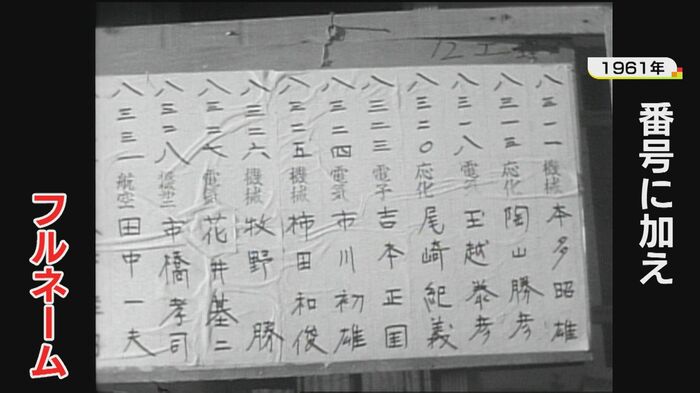 1961年
番号に加え
フルネーム
八三一一 機械 本多昭雄
八三一五 応化 陶山勝彦
八三一八 電気 玉越泰彦
八三二〇 応化 尾崎紀義
八三二三 電子 吉本正国
八三二四 電気 市川初雄
八三二五 機械 柿田和俊
八三二六 機械 牧野勝
八三二七 電気 花井基二
八三二八 市橋孝司
八三三一 航空 田中一夫